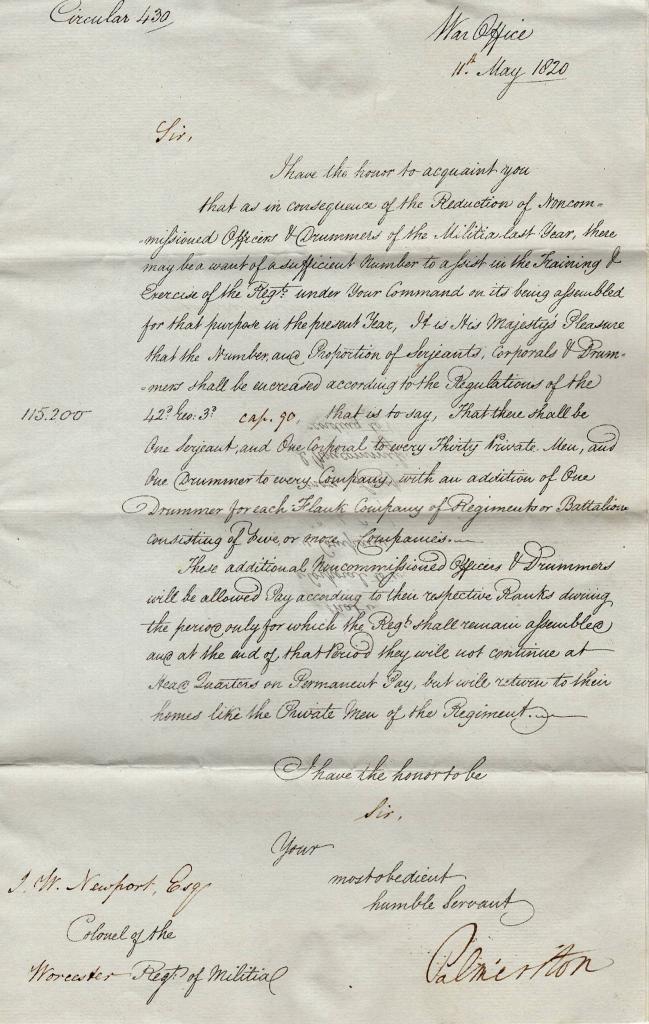 Circular 430
War Office
11th May 1820
Sir,
I have the honor to acquaint you
that as in consequence of the Reduction of Noncom-
-missioned Officers & Drummers of the Militia last Year, there
may be a want of a sufficient Number to assist in the Training &
Exercise of the Regt. under Your Command on its being assembled
for that purpose in the present Year, It is His Majesty's Pleasure
that the Number, and Proportion of Serjeants, Corporals & Drum-
-mers shall be encreased according to the Regulations of the
115.200
42d. Geo: 3d. cap. 90, that is to say, That there shall be
One Serjeant, and One Corporal to every Thirty Private Men, and
One Drummer to every Company, with an addition of One
Drummer for each Flank Company of Regiments or Battalions
consisting of Five, or more Companies.
These additional Noncommissioned Officers & Drummers
will be allowed Pay according to their respective Ranks during
the period only for which the Regt. shall remain assembled
and at the end of that Period they will not continue at
Head Quarters on Permanent Pay, but will return to their
homes like the Private Men of the Regiment.
I have the honor to be
Sir,
Your
most obedient
humble Servant
J. W. Newport, Esq
Colonel of the
Worcester Regt. of Militia
Palmerston